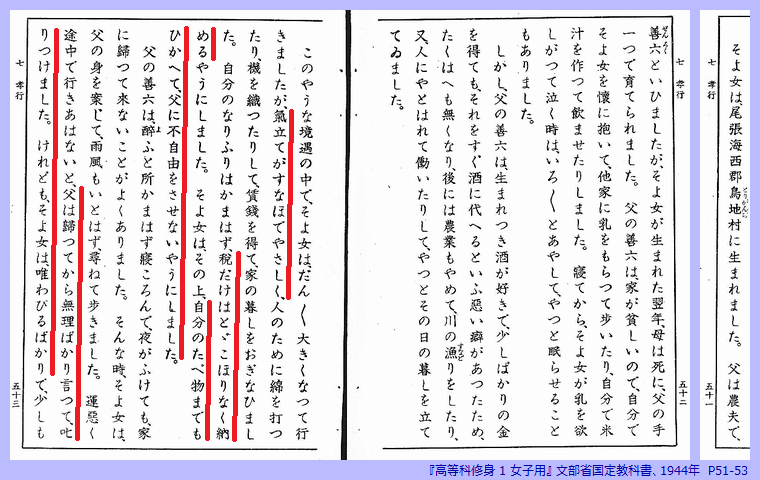 七 孝行
そよ女は、尾張海西郡鳥地村に生まれました。 父は農夫で、
五十一
善六といひましたが、そよ女が生まれた翌年、母は死に、父の手
一つで育てられました。 父の善六は、家が貧しいので、自分で
そよ女を懐に抱いて、他家に乳をもらつて歩いたり、自分で米
汁を作つて飲ませたりしました。 寝てから、そよ女が乳を欲
しがつて泣く時は、いろ〳〵とあやして、やつと眠らせること
もありました。
しかし、父の善六は、生まれつき酒が好きで、少しばかりの金
を得ても、それをすぐ酒に代へるといふ惡い癖があつたため、
たくはへも無くなり、後には農業もやめて、川の漁りをしたり、
又、人にやとはれて働いたりして、やつとその日の暮しを立て
てゐました。
七 孝行
五十二
このやうな境遇の中で、そよ女は、だん〳〵大きくなつて行
きましたが、氣立てがすなほでやさしく、人のために綿を打つ
たり、機を織つたりして、賃錢を得て、家の暮しをおぎなひまし
た。 自分のなりふりはかまはず、税だけはとゞこほりなく納
めるやうにしました。 そよ女は、その上、自分のたべ物までも
ひかへて、父に不自由をさせないやうにしました。
父の善六は、醉ふと所かまはず寢ころんで、夜がふけても、家
に歸つて來ないことがよくありました。 そんな時、そよ女は、
父の身を案じて、雨風もいとはず、尋ねて歩きました。 運惡く
途中で行きあはないと、父は歸つてから無理ばかり言つて、叱
りつけました。 けれども、そよ女は、唯わびるばかりで、少しも
七 孝行
五十三
『高等科修身 1 女子用』 文部省国定教科書、1944年 P51-53